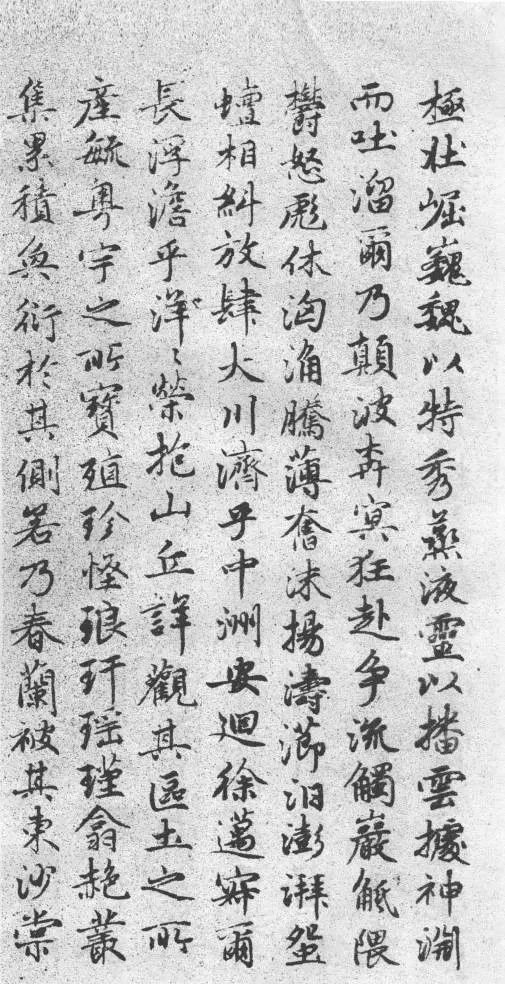 極壯崛巍巍以特秀蒸液靈以播雲據神淵
而吐溜爾乃顛波奔突狂赴争流觸巖觝隈
欝怒彪休洶涌騰薄奮沫揚濤瀄汨澎湃蜿
蟺相糾放肆大川濟乎中洲安迴徐邁寂爾
長浮澹乎洋〻縈抱山丘詳觀其區土之所
產毓奧宇之所寶殖珍怪琅玕瑶瑾翕赩叢
集累積奐衍於其側若乃春蘭被其東沙棠